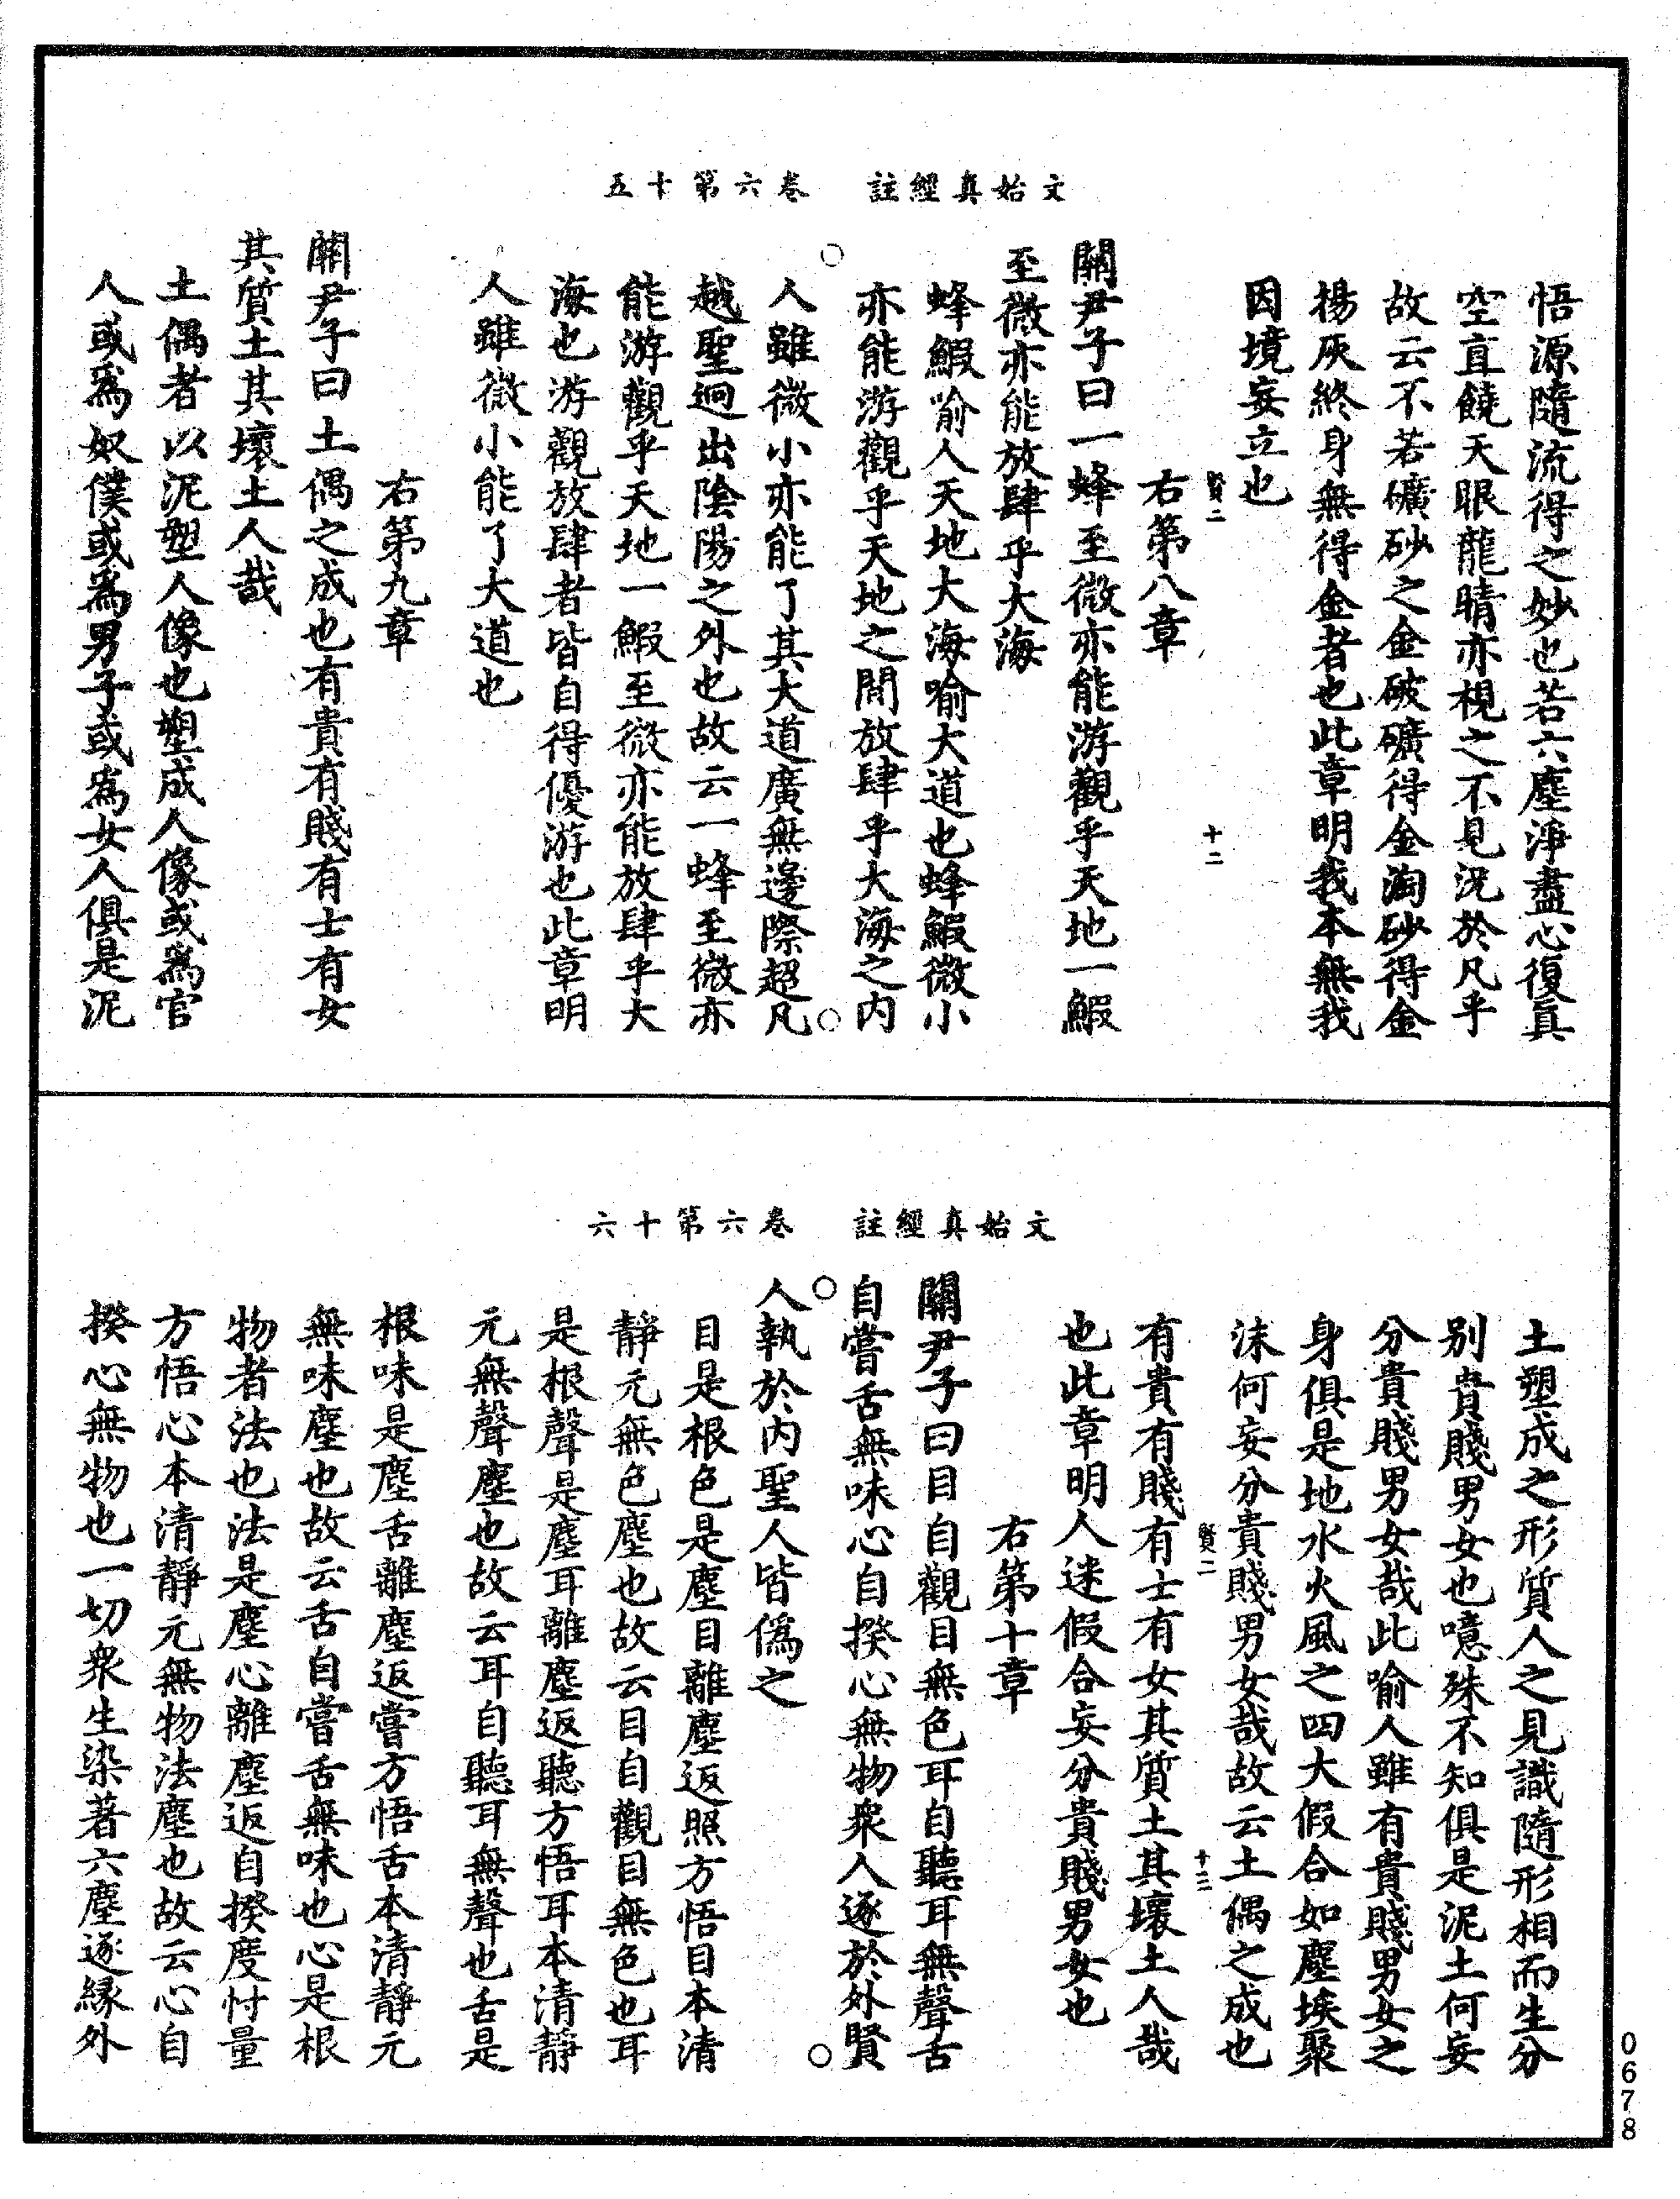 文始真經註　卷六第十五
悟源隨流得之妙也若六塵淨盡心復真
空直饒天眼龍睛亦覌之不見況於凡乎
故云不若礦砂之金破礦得金淘砂得金
揚灰終身無得金者也此章明我本無我
因境妄立也
賢二　十二
右第八章
關尹子曰一蜂至微亦能游觀乎天地一鰕
至微亦能放肆乎大海
蜂鰕喻人天地大海喻大道也蜂鰕微小
亦能游觀乎天地之間放肆乎大海之內
人雖微小亦能了其大道廣無邊際超凡
越聖迥出陰陽之外也故云一蜂至微亦
能游觀乎天地一鰕至微亦能放肆乎大
海也游觀放肆者皆自得優游也此章明
人雖微小能了大道也
右第九章
關尹子曰土偶之成也有貴有賤有士有女
其質土其壞土人哉
土偶者以泥塑人像也塑成人像或為官
人或為奴僕或為男子或為女人俱是泥
文始真經註　卷六第十六
土塑成之形質人之見識隨形相而生分
別貴賤男女也噫殊不知俱是泥土何妄
分貴賤男女哉此喻人雖有貴賤男女之
身俱是地水火風之四大假合如塵埃聚
沫何妄分貴賤男女哉故云土偶之成也
賢二　十三
有貴有賤有士有女其質土其壞土人哉
也此章明人迷假合妄分貴賤男女也
右第十章
關尹子曰目自觀目無色耳自聽耳無聲舌
自嘗舌無味心自揆心無物衆人逐於外賢
人執於內聖人皆偽之
目是根色是塵目離塵返照方悟目本清
靜元無色塵也故云目自觀目無色也耳
是根聲是塵耳離塵返聽方悟耳本清靜
元無聲塵也故云耳自聽耳無聲也舌是
根味是塵舌離塵返嘗方悟舌本清靜元
無味塵也故云舌自嘗舌無味也心是根
物者法也法是塵心離塵返自揆度忖量
方悟心本清靜元無物法塵也故云心自
揆心無物也一切衆生染著六塵逐緣外
0678